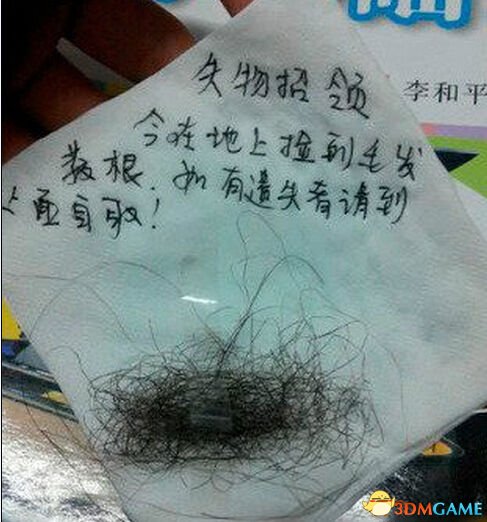 失物招领
李和平
今在地上捡到毛发
数根，如有遗失者请到
上面自取！
3DMGAME